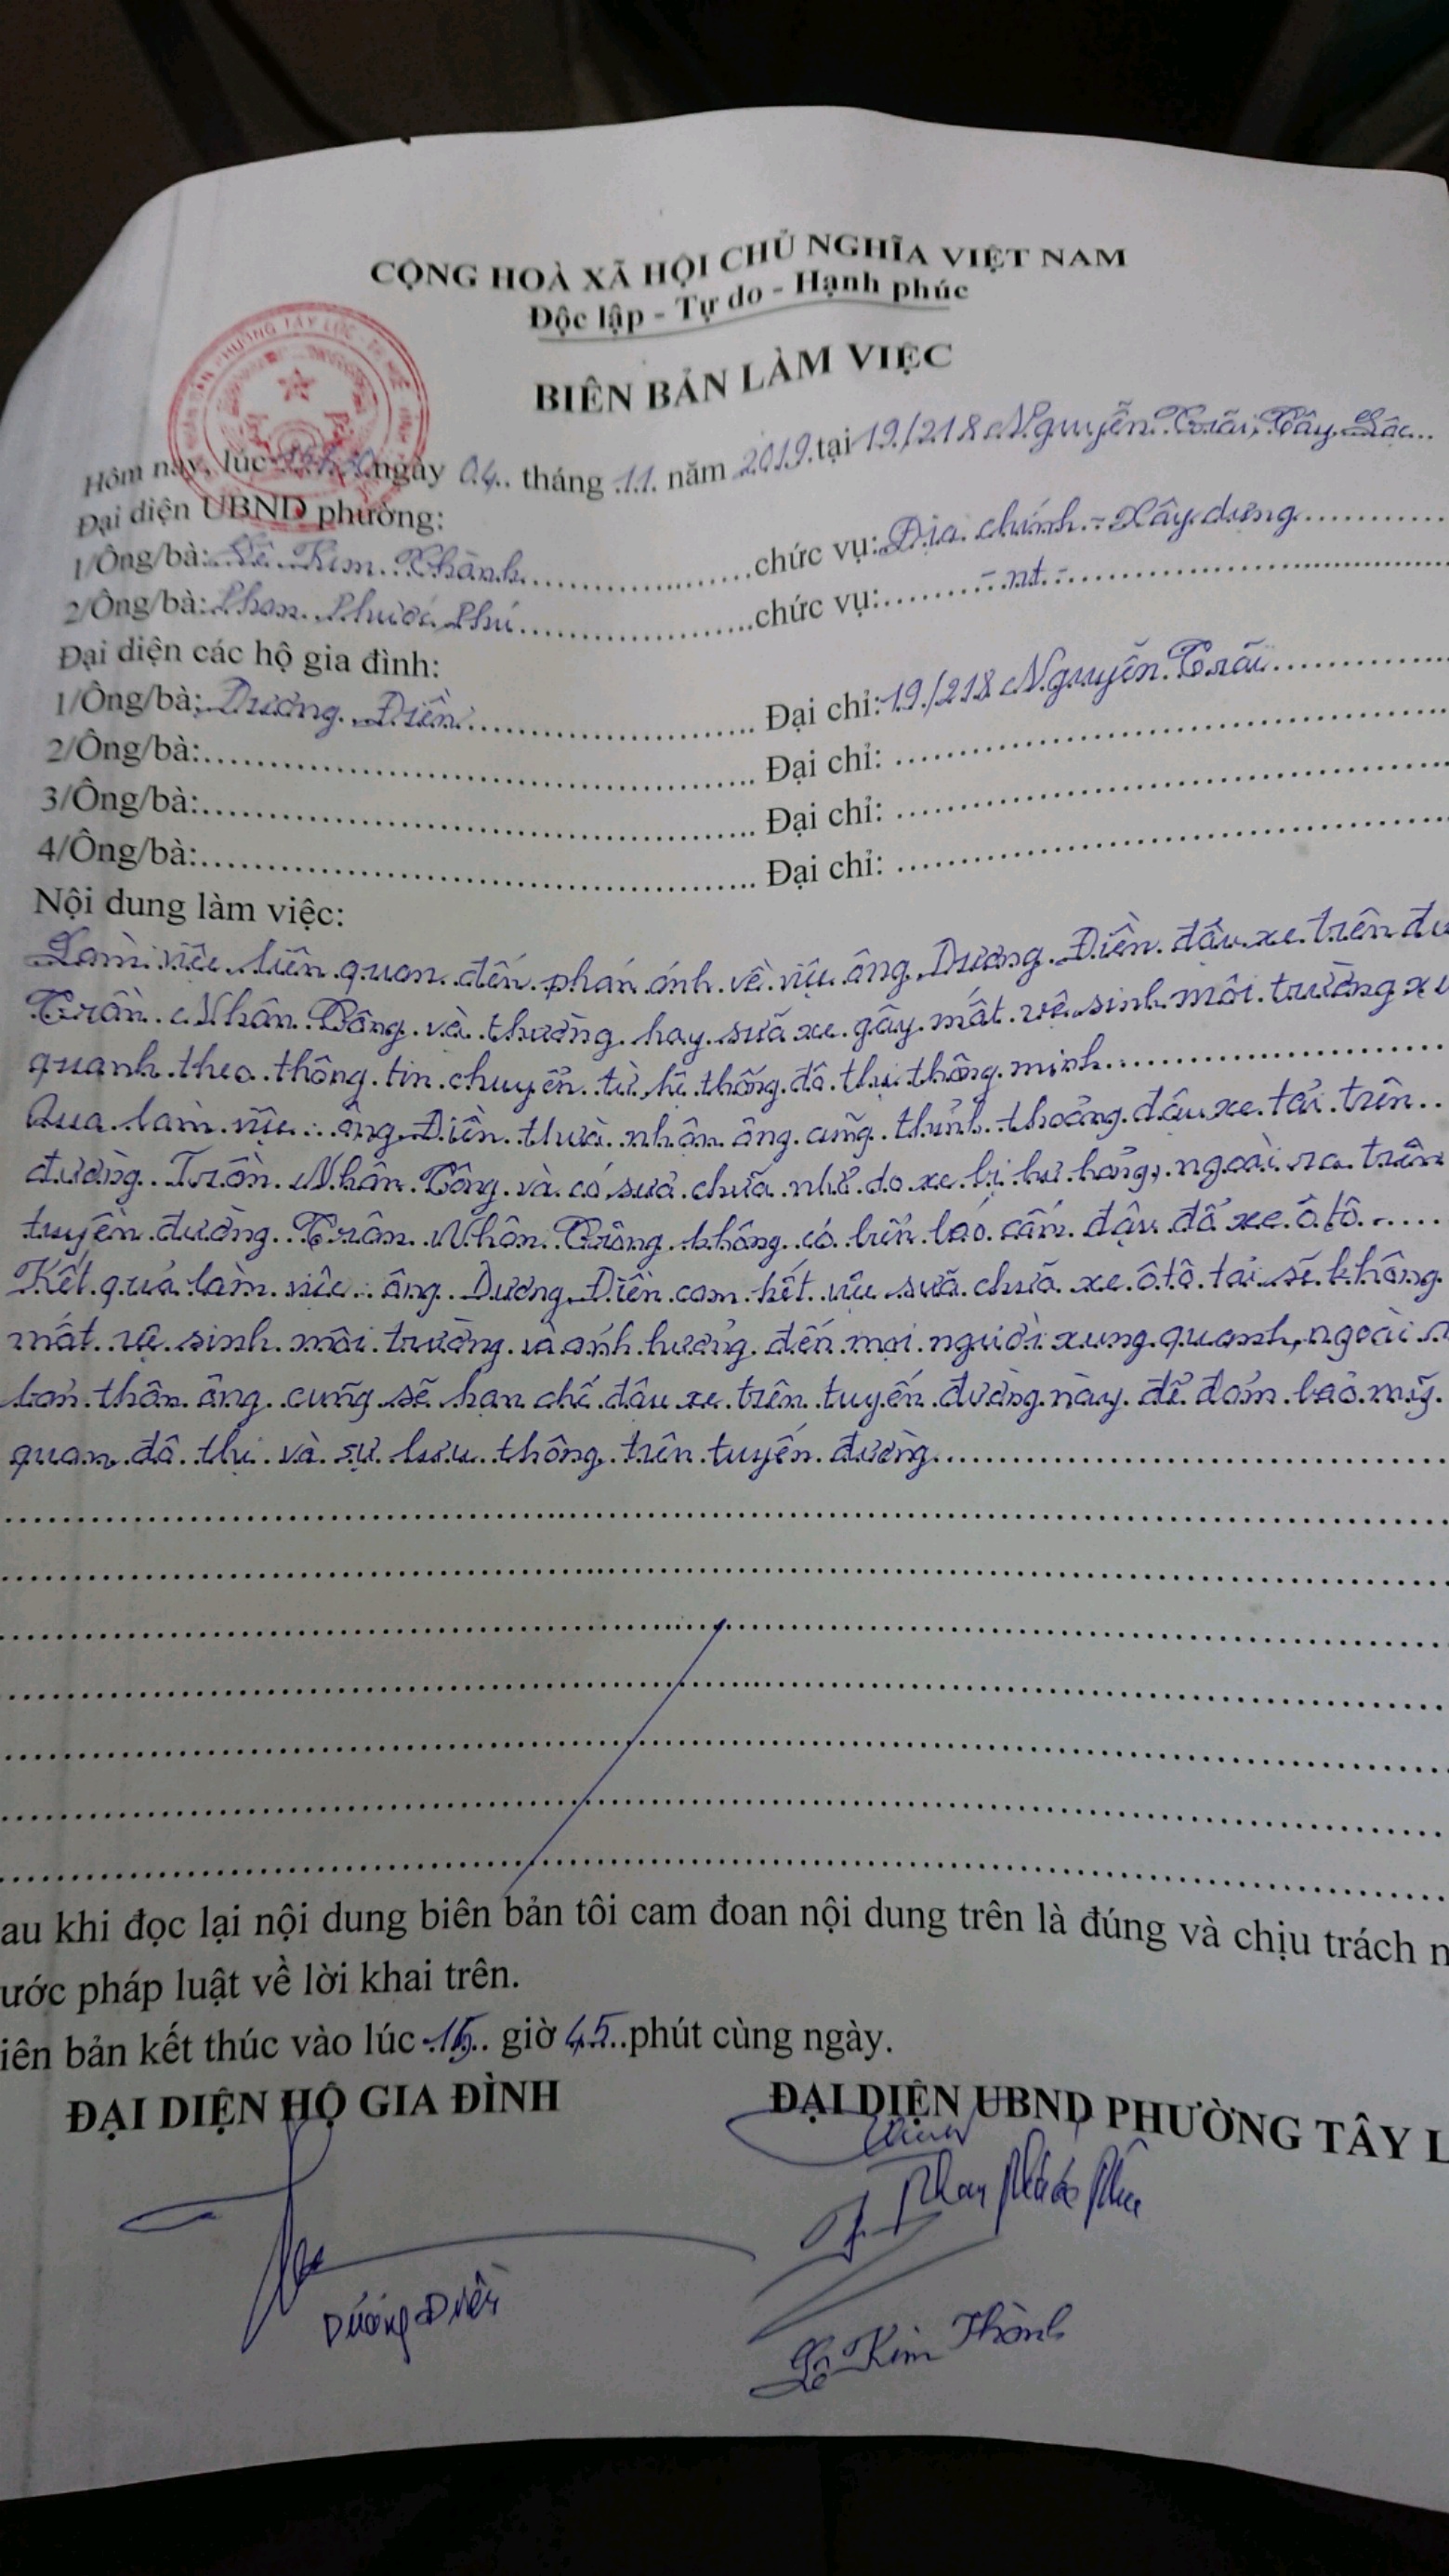 CỘNG HOÀ XÃ HỘI CHỦ NGHĨA VIỆT NAM
Độc lập - Tự do - Hạnh phúc
BIÊN BẢN LÀM VIỆC
Hôm nay, lúc ngày 04.. tháng .11. năm 2019.tại 19/218 Nguyễn Trãi, Tây Lộc...
Đại diện UBND phường:
1/Ông/bà: Lê Kim Thành...chức vụ: Địa chính - Xây dựng...
2/Ông/bà: Phan Phước Phú...chức vụ:... - nt - ...
Đại diện các hộ gia đình:
1/Ông/bà: Dương Điền... Đại chỉ: 19/218 Nguyễn Trãi...
2/Ông/bà:... Đại chỉ: ...
3/Ông/bà:... Đại chỉ: ...
4/Ông/bà:... Đại chỉ: ...
Nội dung làm việc:
Làm việc liên quan đến phản ánh về việc ông Dương Điền đậu xe trên đư
Trần Nhân Tông và thường hay sữa xe gây mất vệ sinh môi trường xu
quanh theo thông tin chuyển từ hệ thống đô thị thông minh...
Qua làm việc: ông Điền thừa nhận ông cũng thỉnh thoảng đậu xe tải trên..
đường Trần Nhân Tông và có sửa chữa nhỏ do xe bị hư hỏng, ngoài ra trên
tuyến đường Trần Nhân Tông không có biển báo cấm đậu đổ xe ô tô......
Kết quả làm việc: ông Dương Điền cam kết việc sữa chữa xe ô tô tải sẽ không
mất vệ sinh môi trường và ảnh hưởng đến mọi người xung quanh, ngoài r
bản thân ông cũng sẽ hạn chế đậu xe trên tuyến đường này để đảm bảo mỹ
quan đô thị và sự lưu thông trên tuyến đường...
au khi đọc lại nội dung biên bản tôi cam đoan nội dung trên là đúng và chịu trách n
ước pháp luật về lời khai trên.
iên bản kết thúc vào lúc .15.. giờ 45..phút cùng ngày.
ĐẠI DIỆN HỘ GIA ĐÌNH ĐẠI DIỆN UBND PHƯỜNG TÂY L
Phan Phước Phú
Dương Điền
Lê Kim Thành